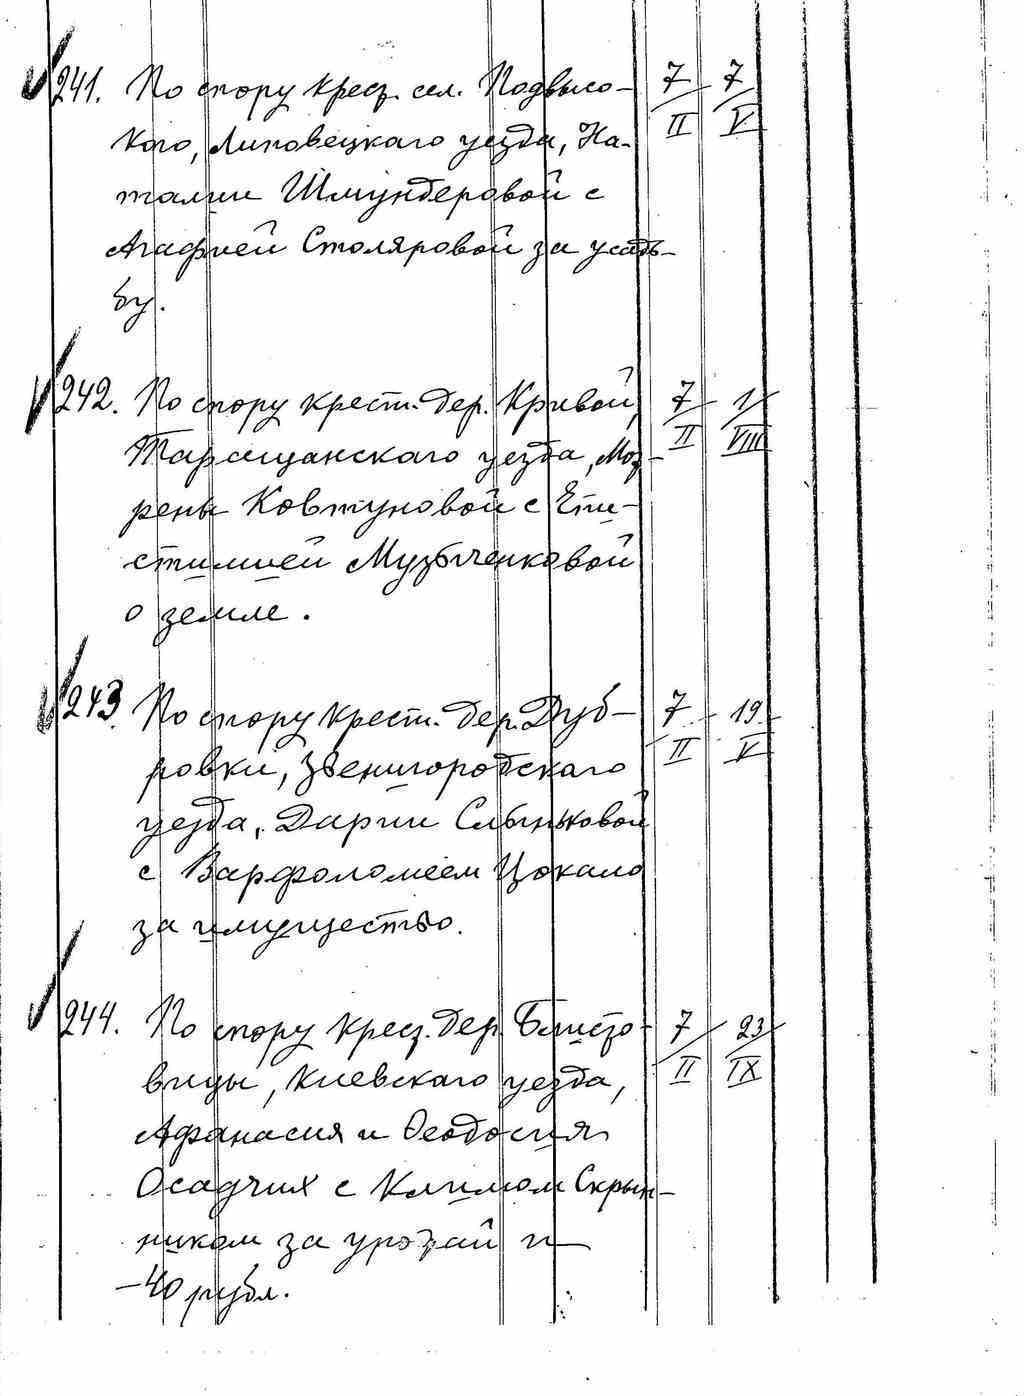 241. По спору крест. сел. Подвысо- 7/II 7/V
кого, Липовецкаго уезда, На-
талии Шмундеровой с
Агафией Столяровой за усадь-
бу.
242. По спору крест. дер. Кривой, 7/II 1/VIII
Таращанскаго уезда, Мот-
рены Ковтуновой с Епи-
стимией Музыченковой
о земле.
243. По спору крест. дер. Дуб- 7/II 19/V
ровки, Звенигородскаго
уезда, Дарии Слыньковой
с Варфоломеем Цокало
за имущество.
244. По спору крест. дер. Блисто- 7/II 23/IX
вицы, Киевскаго уезда,
Афанасия и Феодосия
Осадчих с Климом Скрын-
ником за урожай и
-40 рубл.